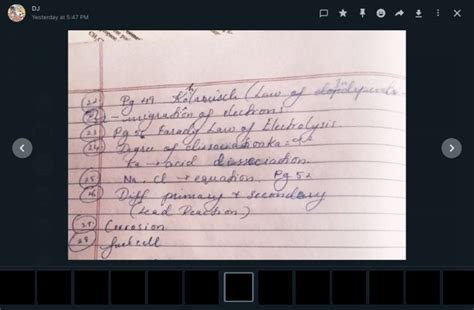 DJ
Yesterday at 5:47 PM
CH₃C
22 Pg 49 Kohlrausch (Law of Independent
migration of electrons
23 Pg 50 Faraday Law of Electrolysis
24 Degree of dissociation
Ka → acid dissociation.
25 Na, Cl → equation. Pg 52
26 Diff primary & secondary
(Lead Reaction)
27 Corrosion
28 fuel cell